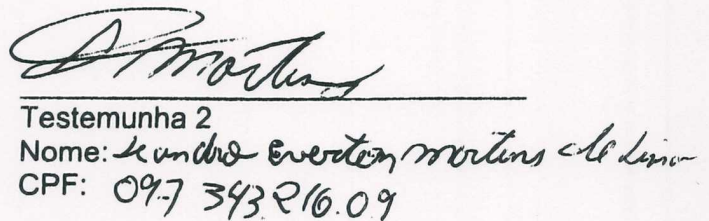 Martins
Testemunha 2
Nome: Leandro Everton Martins de Lima
CPF: 097 343 216.09